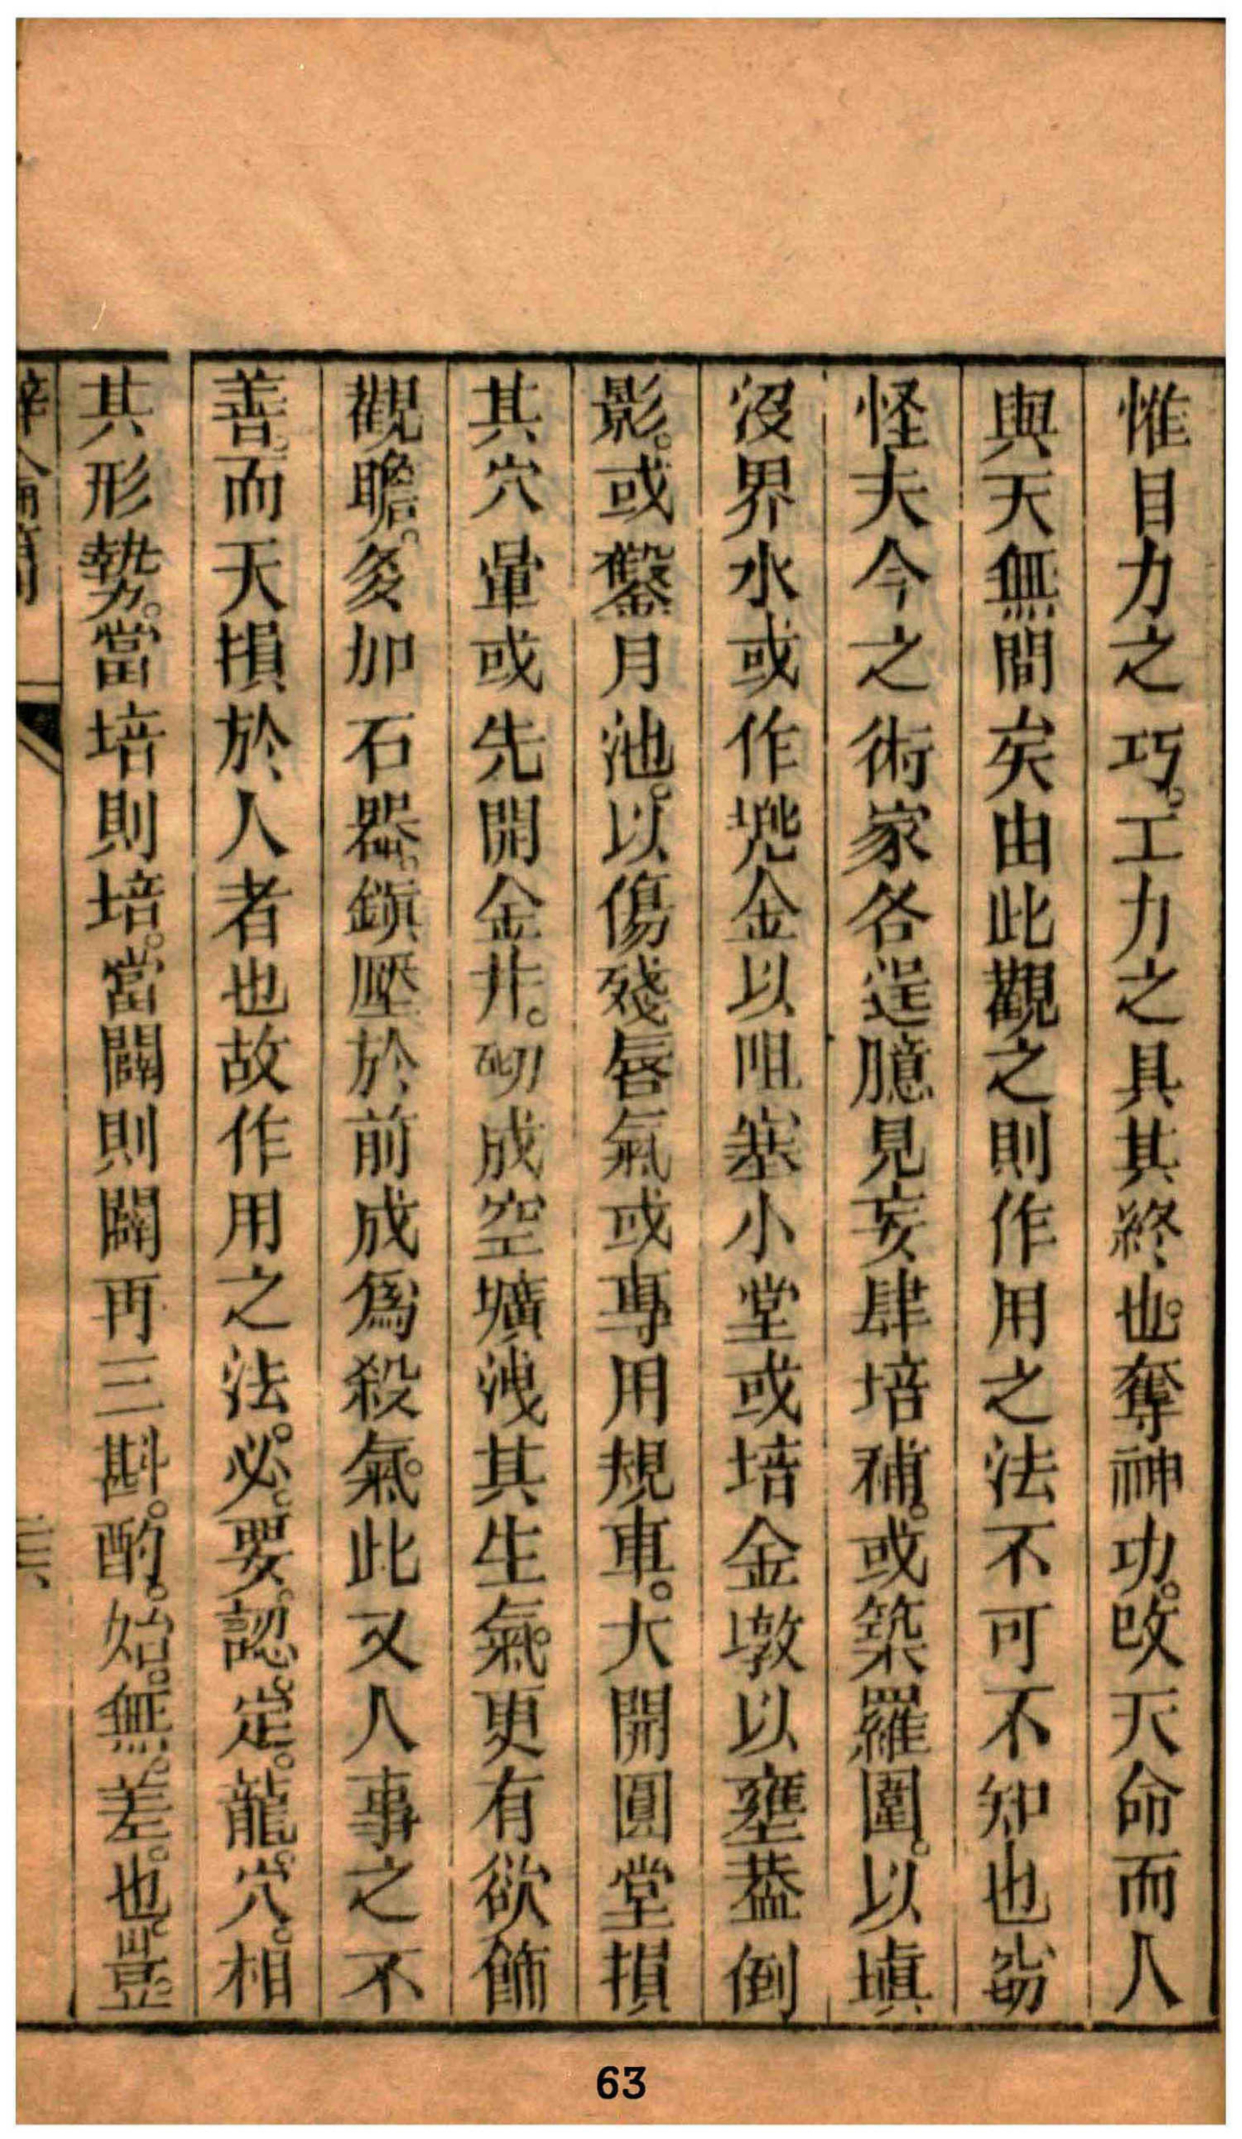 惟目力之巧。工力之具其終也。奪神功。改天命而人
與天無間矣由此觀之則作用之法不可不知也窃
怪夫今之術家各逞臆見妄肆培補。或築羅圍。以塡
沒界水或作兠金以阻塞小堂或培金墩以壅葢倒
影。或鑿月池。以傷殘唇氣或專用規車。大開圓堂損
其穴暈或先開金井。砌成空壙洩其生氣。更有欲飾
觀瞻。多加石器。鎭壓於前成爲殺氣。此又人事之不
善。而天損於人者也故作用之法。必。要。認。定。龍。穴。相
其形勢。當培則培。當闢則闢再三斟。酌。始。無。差。也。豈。
63